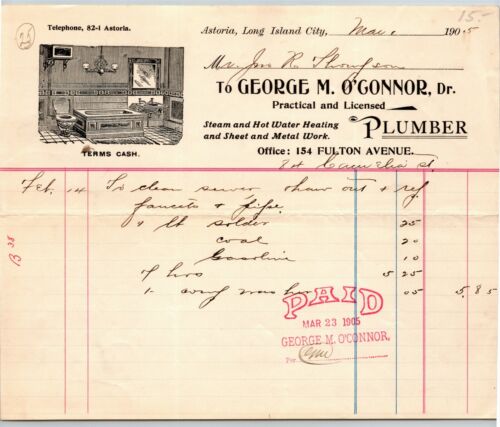 15-
25
Telephone, 82-1 Astoria.
Astoria, Long Island City, Mar 1905
Mr Jno R Thompson
To GEORGE M. O'CONNOR, Dr.
Practical and Licensed
Steam and Hot Water Heating
and Sheet and Metal Work.
PLUMBER
TERMS CASH.
Office: 154 FULTON AVENUE.
84 Camelia St.
Feb. 14 To clean sewer thaw out & ref
faucets & pipe
solder 25
coal 20
Gasoline 10
7 hrs 5 25
1- 05 5.85
B 38
PAID
MAR 23 1905
GEORGE M. O'CONNOR,
Per